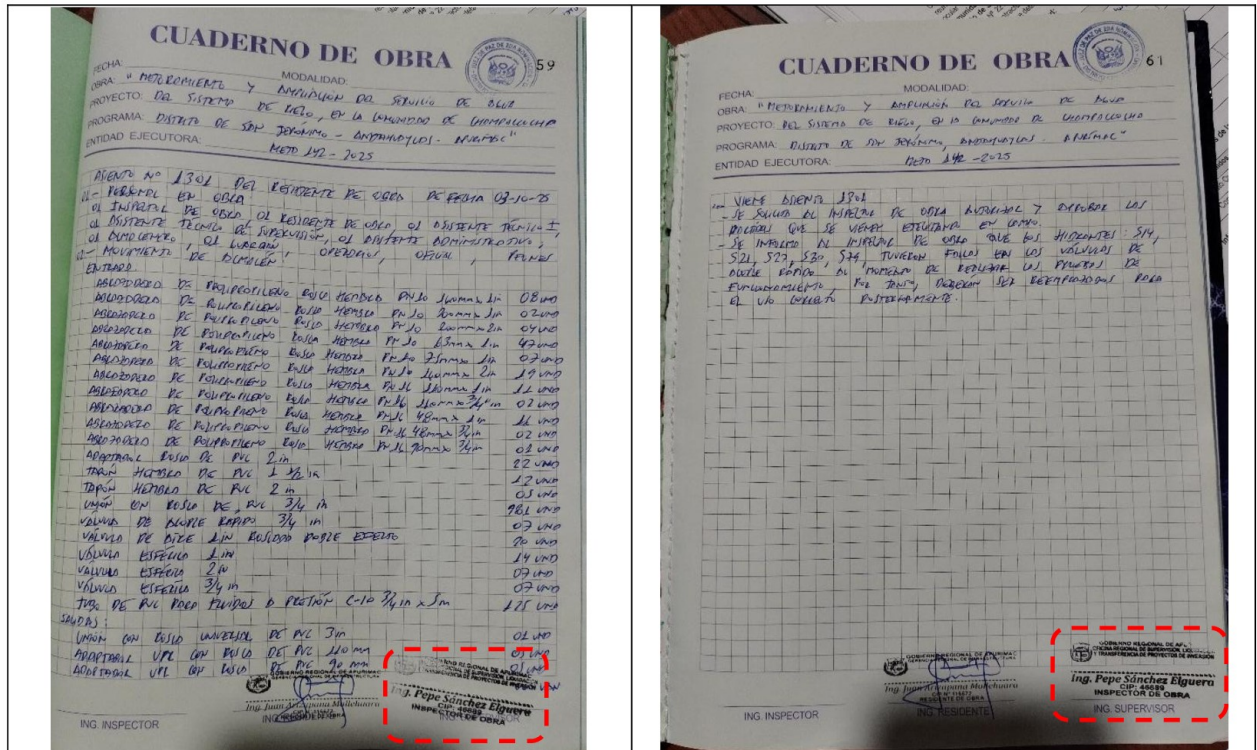 CUADERNO DE OBRA
59
FECHA:
MODALIDAD:
OBRA: "MEJORAMIENTO Y AMPLIACIÓN DEL SERVICIO DE AGUA
PROYECTO: DEL SISTEMA DE RIEGO, EN LA COMUNIDAD DE CHAMPACCOCHA
PROGRAMA: DISTRITO DE SAN JERÓNIMO - ANDAHUAYLAS - APURIMAC"
ENTIDAD EJECUTORA: META 142 - 2025
ASIENTO Nº 1301 DEL RESIDENTE DE OBRA DE FECHA 03-10-25
- PERSONAL EN OBRA
01 INSPECTOR DE OBRA, 01 RESIDENTE DE OBRA, 01 ASISTENTE TÉCNICO I,
01 ASISTENTE TÉCNICO DE SUPERVISIÓN, 01 ASISTENTE ADMINISTRATIVO,
01 ALMACENERO, 01 GUARDIÁN, OPERARIOS, OFICIAL, PEONES
- MOVIMIENTO DE ALMACÉN:
ENTRADA
ABRAZADERA DE POLIPROPILENO ROSCA HEMBRA PN 10 140mm x 1in 08 UND
ABRAZADERA DE POLIPROPILENO ROSCA HEMBRA PN 10 200mm x 1in 02 UND
ABRAZADERA DE POLIPROPILENO ROSCA HEMBRA PN 10 200mm x 2in 04 UND
ABRAZADERA DE POLIPROPILENO ROSCA HEMBRA PN 10 63mm x 1in 47 UND
ABRAZADERA DE POLIPROPILENO ROSCA HEMBRA PN 10 75mm x 1in 07 UND
ABRAZADERA DE POLIPROPILENO ROSCA HEMBRA PN 10 140mm x 2in 19 UND
ABRAZADERA DE POLIPROPILENO ROSCA HEMBRA PN 16 110mm x 1in 11 UND
ABRAZADERA DE POLIPROPILENO ROSCA HEMBRA PN 16 110mm x 3/4 in 02 UND
ABRAZADERA DE POLIPROPILENO ROSCA HEMBRA PN 16 48mm x 1in 16 UND
ABRAZADERA DE POLIPROPILENO ROSCA HEMBRA PN 16 48mm x 3/4in 02 UND
ABRAZADERA DE POLIPROPILENO ROSCA HEMBRA PN 16 90mm x 3/4in 01 UND
ADAPTADOR ROSCA DE PVC 2 in 22 UND
TAPÓN HEMBRA DE PVC 1 1/2 in 12 UND
TAPÓN HEMBRA DE PVC 2 in 05 UND
UNIÓN CON ROSCA DE PVC 3/4 in 981 UND
VÁLVULA DE ACOPLE RÁPIDO 3/4 in 07 UND
VÁLVULA DE AIRE 1in ROSCADA DOBLE EFECTO 90 UND
VÁLVULA ESFÉRICA 1 in 14 UND
VÁLVULA ESFÉRICA 2 in 07 UND
VÁLVULA ESFÉRICA 3/4 in 07 UND
TUBO DE PVC PARA FLUIDOS A PRESIÓN C-10 3/4 in x 5m 175 UND
SALIDAS:
UNIÓN CON ROSCA UNIVERSAL DE PVC 3in 01 UND
ADAPTADOR UPR CON ROSCA DE PVC 110 mm 03 UND
ADAPTADOR UPR CON ROSCA DE PVC 90 mm UND
GOBIERNO REGIONAL DE APURIMAC
Ing. Juan Mollehuara
RESIDENTE DE OBRA
Ing. Pepe Sánchez Elguera
CIP: 46689
INSPECTOR DE OBRA
ING. INSPECTOR
CUADERNO DE OBRA
61
FECHA:
MODALIDAD:
OBRA: "MEJORAMIENTO Y AMPLIACIÓN DEL SERVICIO DE AGUA
PROYECTO: DEL SISTEMA DE RIEGO, EN LA COMUNIDAD DE CHAMPACCOCHA
PROGRAMA: DISTRITO DE SAN JERÓNIMO, ANDAHUAYLAS - APURIMAC"
ENTIDAD EJECUTORA: META 142 - 2025
... VIENE ASIENTO 1301
- SE SOLICITA AL INSPECTOR DE OBRA AUTORIZAR Y APROBAR LAS
PARTIDAS QUE SE VIENEN EJECUTANDO EN CAMPO.
- SE INFORMA AL INSPECTOR DE OBRA QUE LOS HIDRANTES: 514,
521, 527, 530, 579, TUVIERON FALLAS EN LAS VÁLVULAS DE
ACOPLE RÁPIDO AL MOMENTO DE REALIZAR LAS PRUEBAS DE
FUNCIONAMIENTO, POR TANTO, DEBERÁN SER REEMPLAZADAS PARA
EL USO CORRECTO POSTERIORMENTE.
GOBIERNO REGIONAL DE APURIMAC
Ing. Juan Mollehuara
RESIDENTE DE OBRA
GOBIERNO REGIONAL DE
OFICINA REGIONAL DE SUPERVISION,
Y TRANSFERENCIA DE PROYECTOS DE INVERSIÓN
Ing. Pepe Sánchez Elguera
CIP: 46689
INSPECTOR DE OBRA
ING. INSPECTOR
ING. RESIDENTE
ING. SUPERVISOR